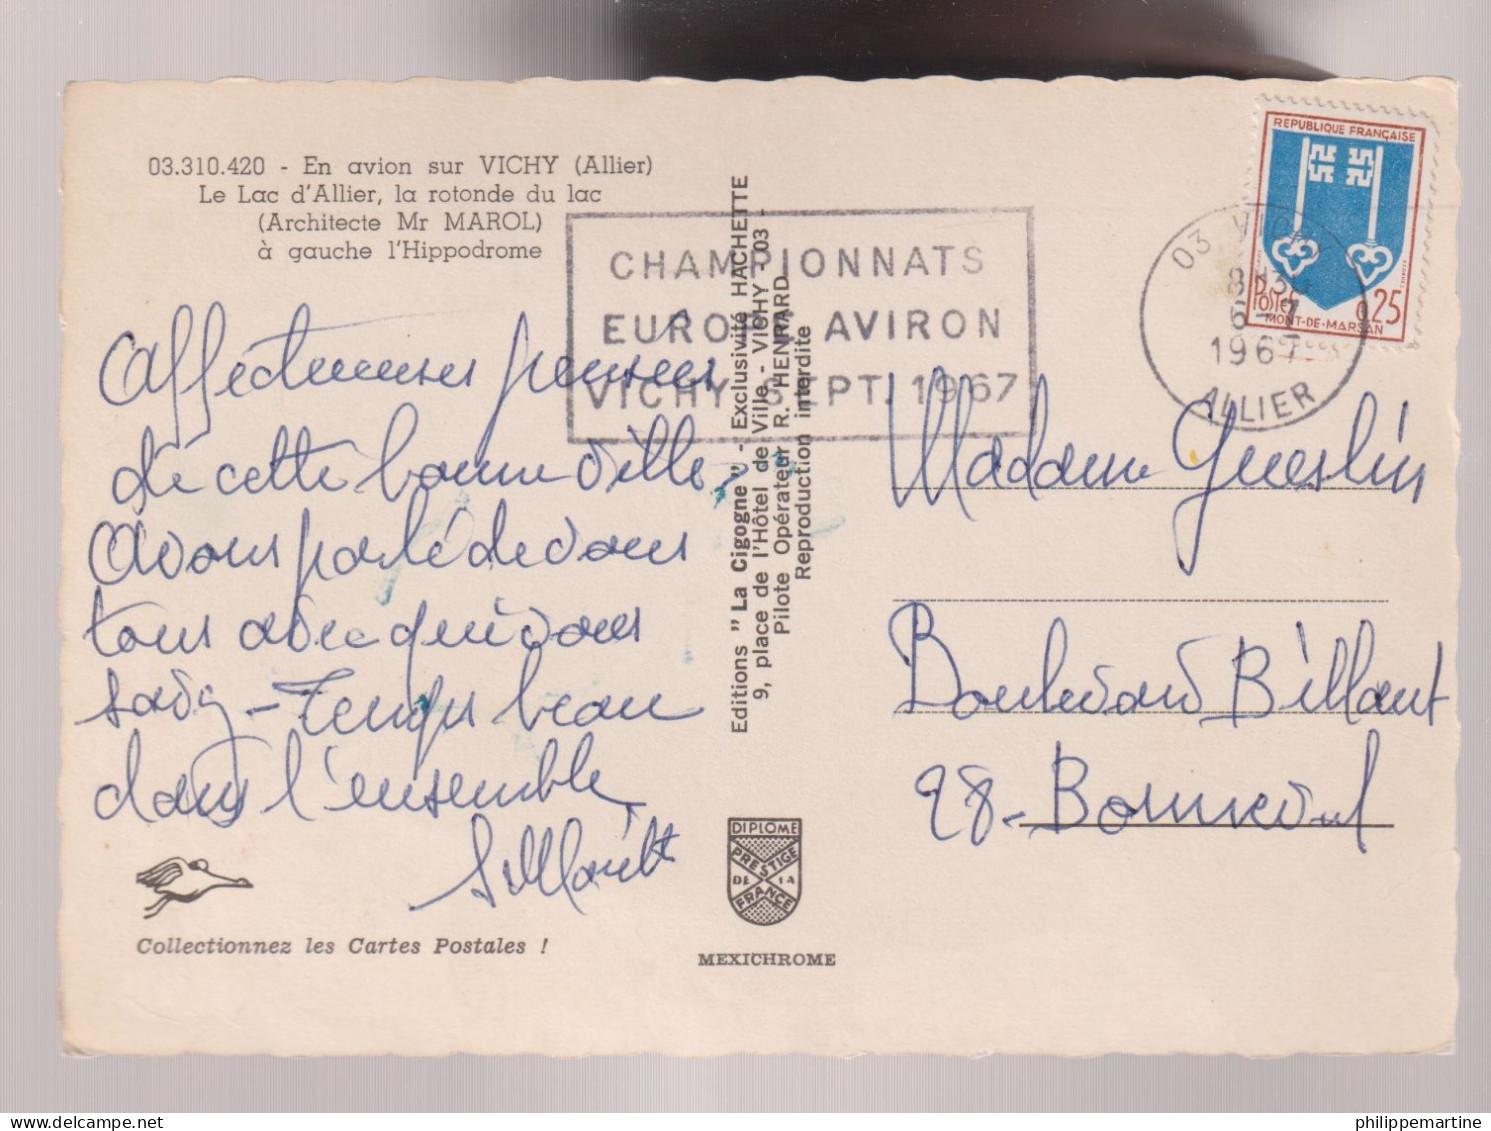 03.310.420 - En avion sur VICHY (Allier)
Le Lac d'Allier, la rotonde du lac
(Architecte Mr MAROL)
à gauche l'Hippodrome
CHAMPIONNATS
EUROP. AVIRON
VICHY SEPT. 1967
REPUBLIQUE FRANÇAISE
POSTES 0,25
MONT-DE-MARSAN
03 VICHY
8H30
6-7
1967
ALLIER
Affectueuses pensées
de cette bonne ville
Avons parlé de vous
tous avec qui vous
savez - Temps beau
dans l'ensemble
Editions "La Cigogne" - Exclusivité HACHETTE
9, place de l'Hôtel de Ville - VICHY - 03 -
Pilote Opérateur R. HENRARD
Reproduction interdite
Madame Gueslin
Boulevard Billaut
28 - Bonneval
Collectionnez les Cartes Postales !
DIPLOME
PRESTIGE
DE LA
FRANCE
MEXICHROME
philippemartine